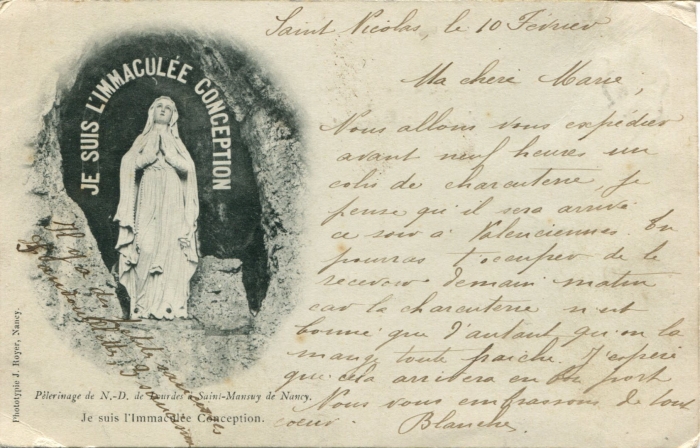 Saint Nicolas, le 10 Février
Ma chère Marie,
Nous allons vous expédier
avant neuf heures un
colis de charcuterie, je
pense qu'il sera arrivé
ce soir à Valenciennes. Tu
pourras t'occuper de le
recevoir demain matin
car la charcuterie n'est
bonne que d'autant qu'on la
mange toute fraiche. J'espère
que cela arrivera en bon port
Nous vous embrassons de tout
coeur. Blanche.
JE SUIS L'IMMACULÉE CONCEPTION
Il y a
Phototypie J. Royer, Nancy.
Pèlerinage de N.-D. de Lourdes à Saint-Mansuy de Nancy.
Je suis l'Immaculée Conception.